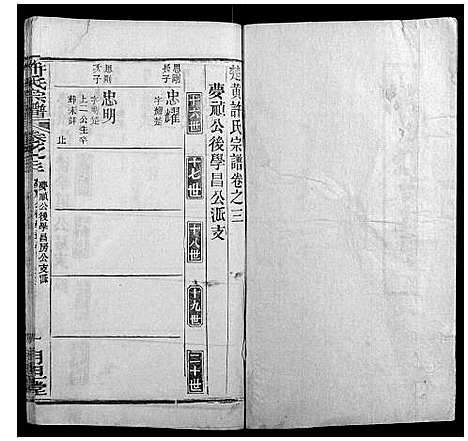 楚黄許氏宗譜卷之三
夢禎公後學昌公派支
十六世
十七世
十八世
十九世
二十世
思剛
長子
忠耀
字楚
思剛
次子
忠明
字楚
上二公生卒
葬未詳
止
許氏宗譜
卷之三
夢禎公後學昌房公支派